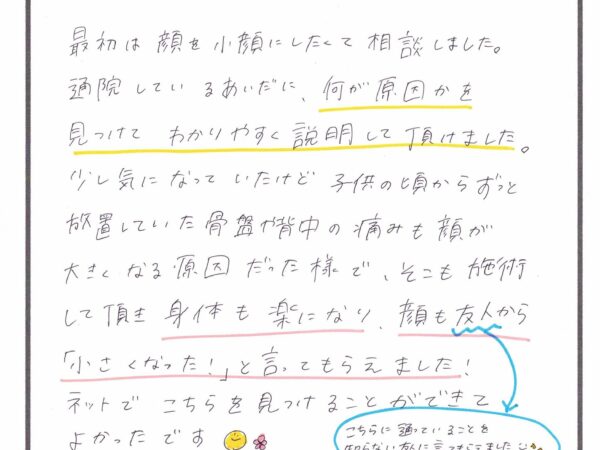 最初は顔を小顔にしたくて相談しました。
通院しているあいだに、何が原因かを
見つけて わかりやすく説明して頂けました。
少し気になっていたけど子供の頃からずっと
放置していた骨盤や背中の痛みも顔が
大きくなる原因だった様で、そこも施術
して頂き身体も楽になり、顔も友人から
「小さくなった!」と言ってもらえました!
ネットでこちらを見つけることができて
よかったです
こちらに通っていることを
知らない友人に言ってもらえました